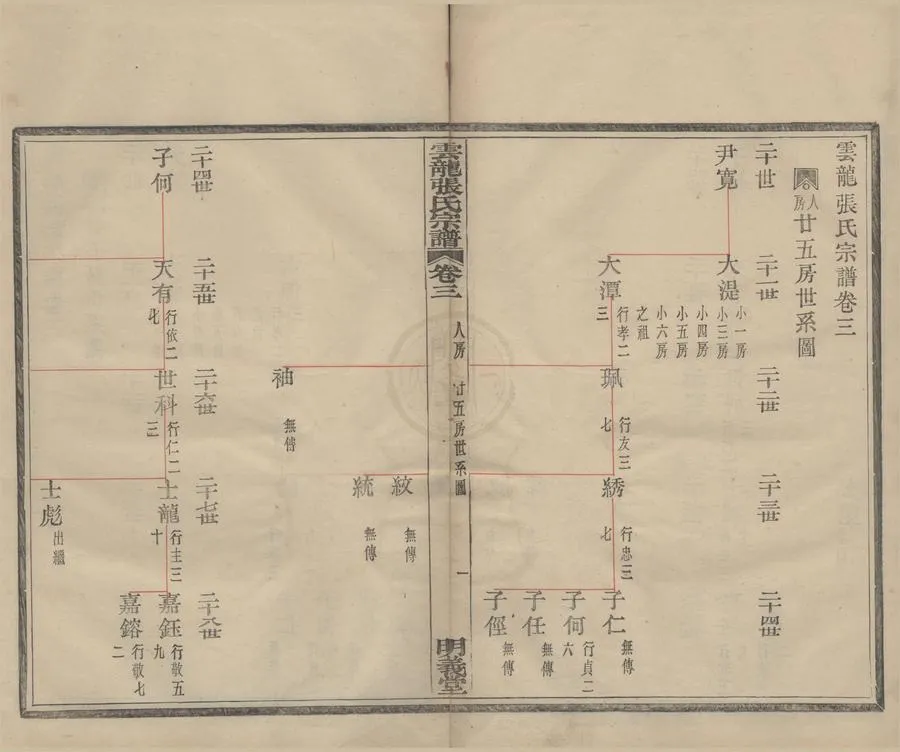 雲龍張氏宗譜卷三
人房
廿五房世系圖
二十世
尹寬
二十一世
大湜
小一房
小三房
小四房
小五房
小六房
之祖
大潭
行孝二
三
二十二世
珮
行友三
七
二十三世
綉
行忠三
七
二十四世
子仁
無傳
子何
行貞二
六
子任
無傳
子徑
無傳
雲龍張氏宗譜
卷三
人房
廿五房世系圖
一
明義堂
紋
無傳
統
無傳
袖
無傳
二十四世
子何
二十五世
天有
行依二
七
二十六世
世科
行仁二
三
二十七世
士龍
行主三
十
士彪
出繼
二十八世
嘉鈺
行敬五
九
嘉鎔
行敬七
二